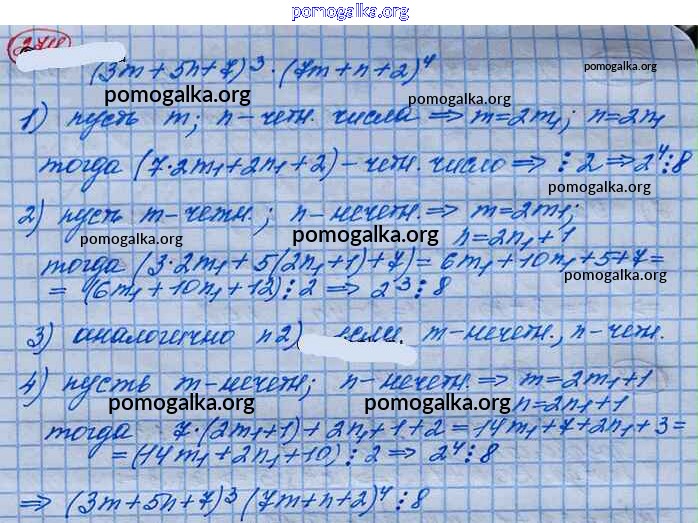 pomogalka.org
(3m+5n+7)³·(7m+n+2)⁴
pomogalka.org
pomogalka.org
pomogalka.org
1) пусть m; n-четн. числа ⇒ m=2m₁; n=2n₁
тогда (7·2m₁+2n₁+2)-четн. число ⇒ ⋮2 ⇒ 2⁴⋮8
pomogalka.org
2) пусть m-четн.; n-нечетн. ⇒ m=2m₁;
pomogalka.org
pomogalka.org
n=2n₁+1
тогда (3·2m₁+5(2n₁+1)+7)=6m₁+10n₁+5+7=
pomogalka.org
=(6m₁+10n₁+12)⋮2 ⇒ 2³⋮8
3) аналогично п2) m-нечетн., n-четн.
4) пусть m-нечетн; n-нечетн. ⇒ m=2m₁+1
pomogalka.org
pomogalka.org
n=2n₁+1
тогда 7·(2m₁+1)+2n₁+1+2=14m₁+7+2n₁+3=
=(14m₁+2n₁+10)⋮2 ⇒ 2⁴⋮8
⇒ (3m+5n+7)³(7m+n+2)⁴⋮8